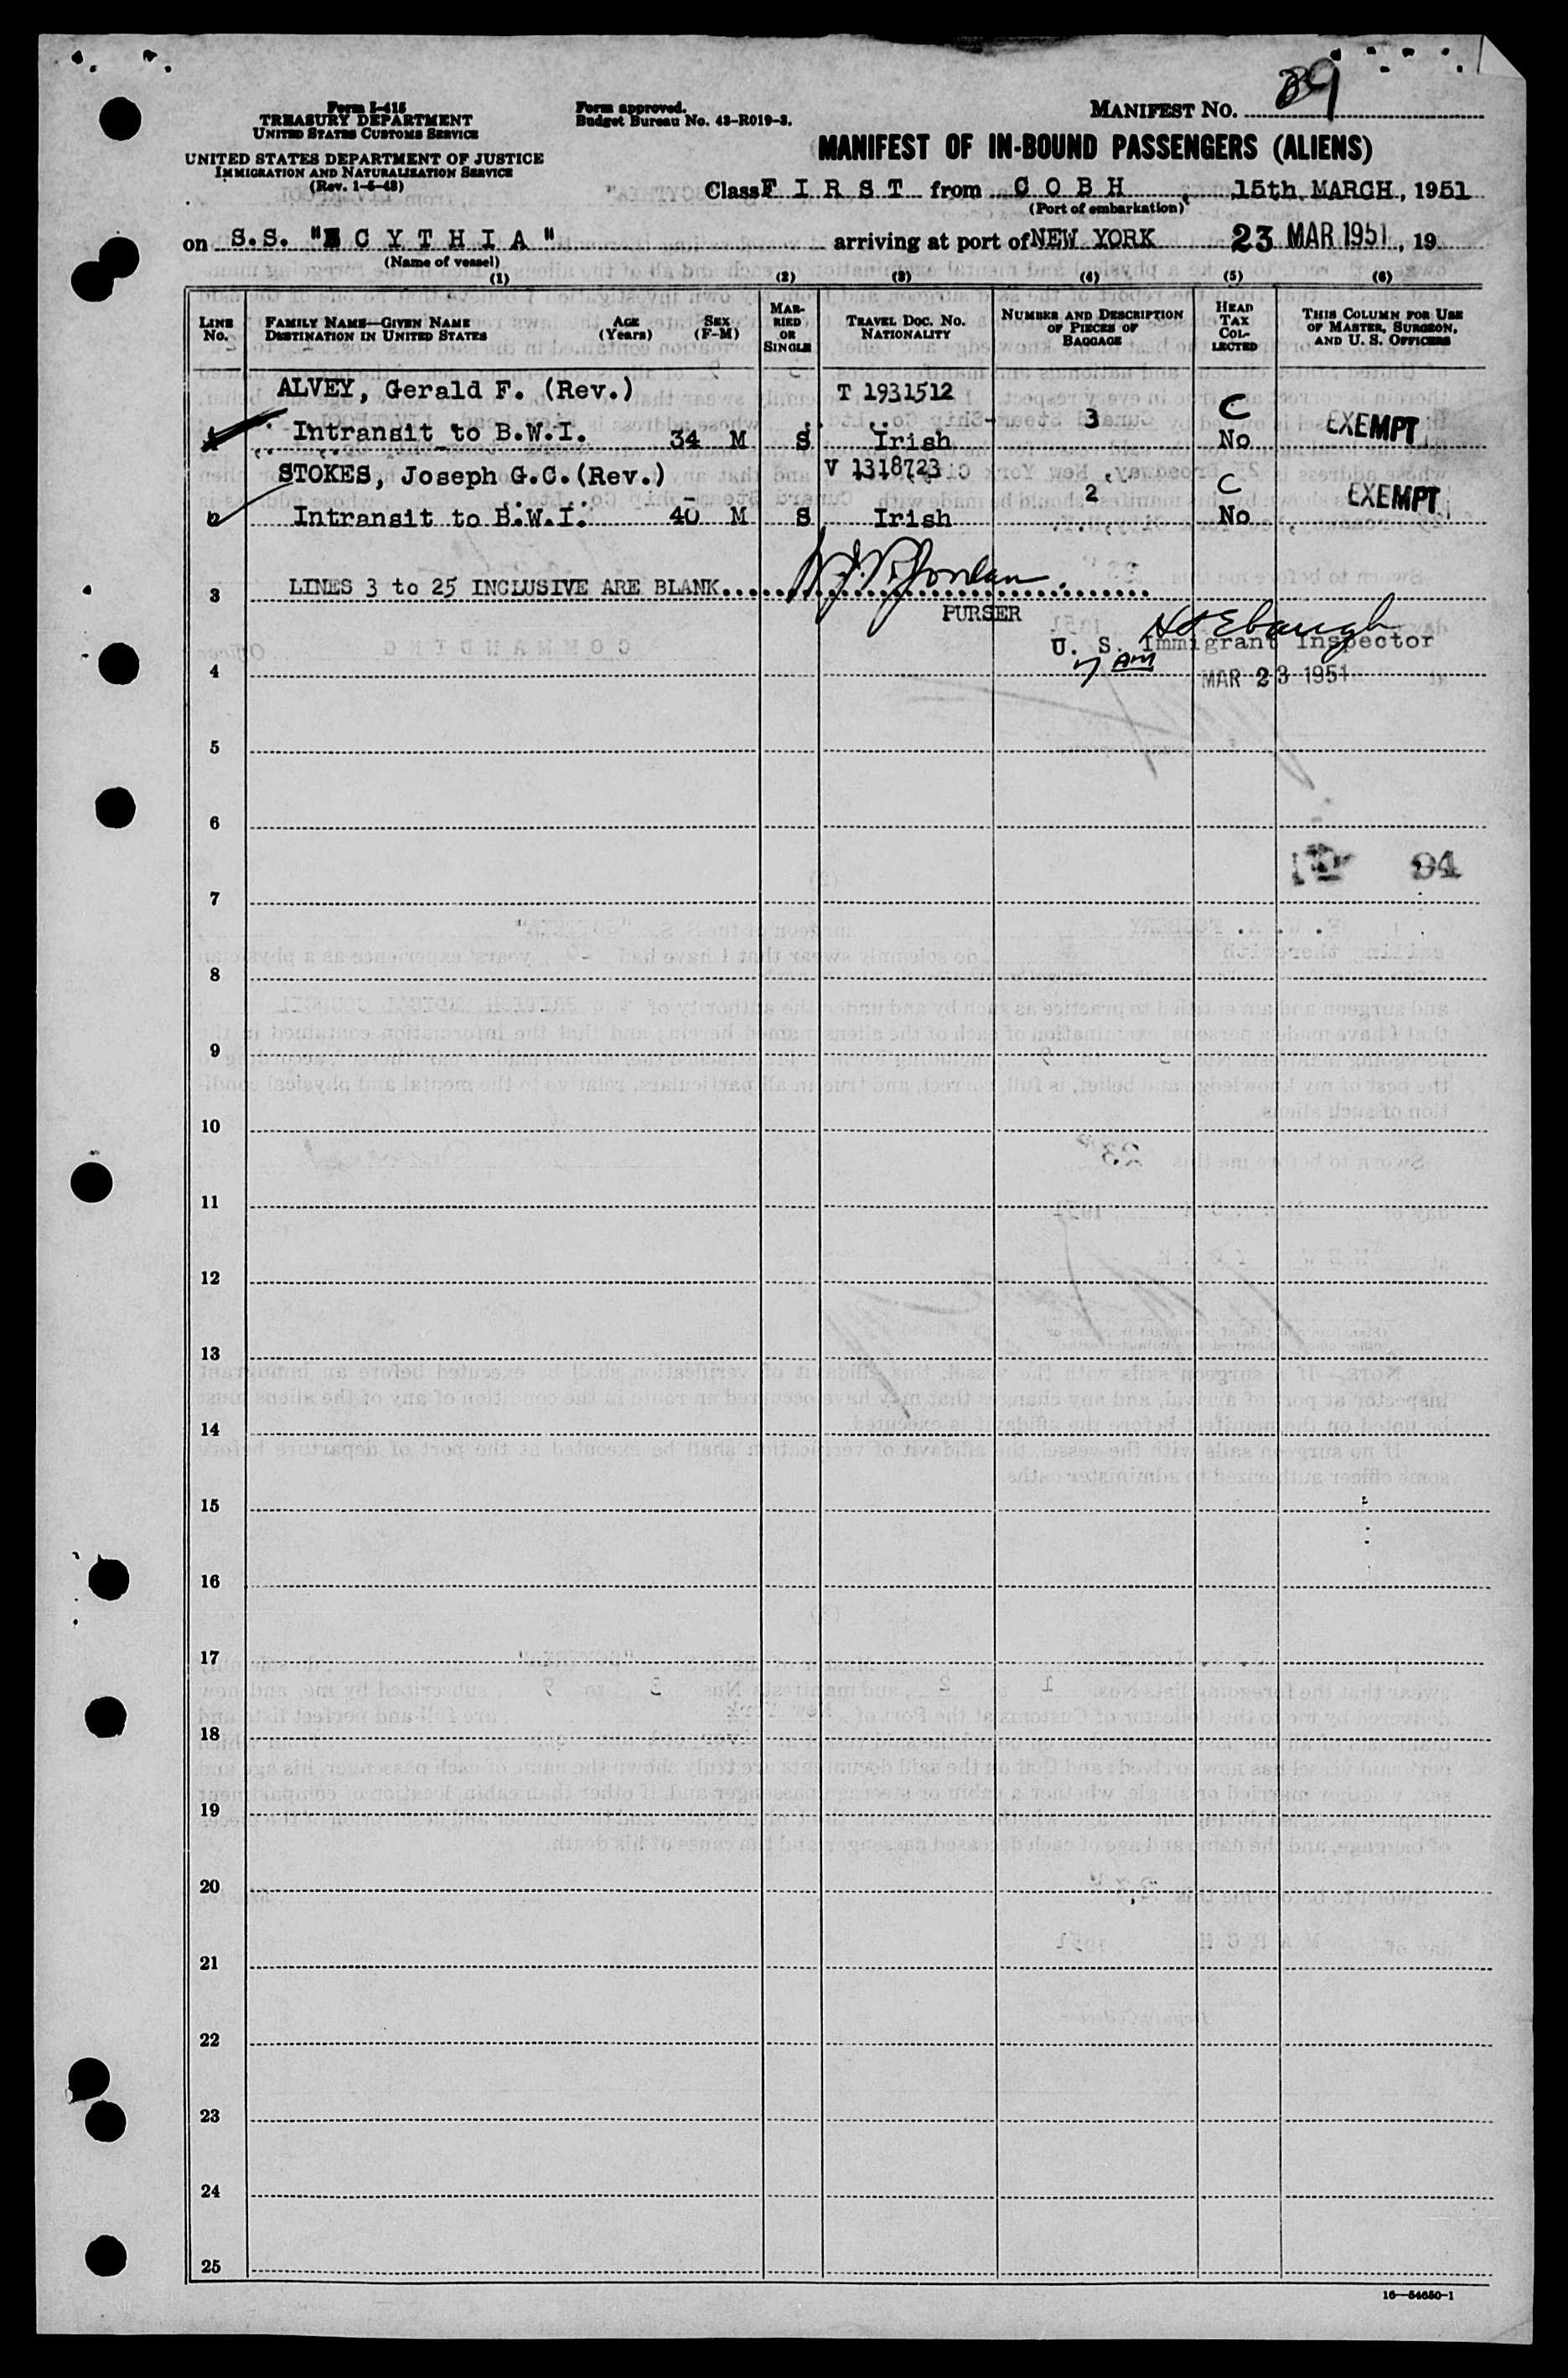 Form I-415
TREASURY DEPARTMENT
UNITED STATES CUSTOMS SERVICE
UNITED STATES DEPARTMENT OF JUSTICE
IMMIGRATION AND NATURALIZATION SERVICE
(Rev. 1-6-43)
Form approved.
Budget Bureau No. 43-R019-3.
MANIFEST NO. 39
MANIFEST OF IN-BOUND PASSENGERS (ALIENS)
Class F I R S T from C O B H, 15th MARCH, 1951
(Port of embarkation)
on S.S. "S C Y T H I A" arriving at port of NEW YORK 23 MAR 1951, 19
(Name of vessel)
(1) (2) (3) (4) (5) (6)
LINE No. FAMILY NAME—GIVEN NAME DESTINATION IN UNITED STATES AGE (Years) SEX (F-M) MARRIED OR SINGLE TRAVEL DOC. NO. NATIONALITY NUMBER AND DESCRIPTION OF PIECES OF BAGGAGE HEAD TAX COLLECTED THIS COLUMN FOR USE OF MASTER, SURGEON, AND U. S. OFFICERS
ALVEY, Gerald F. (Rev.) T 1931512
1 Intransit to B.W.I. 34 M S Irish 3 C No EXEMPT
STOKES, Joseph G.C. (Rev.) V 1318723
2 Intransit to B.W.I. 40 M S Irish 2 C No EXEMPT
3 LINES 3 to 25 INCLUSIVE ARE BLANK
PURSER
U. S. Immigrant Inspector
7 AM
MAR 23 1951
4
5
6
94
7
8
9
10
11
12
13
14
15
16
17
18
19
20
21
22
23
24
25
16—54650-1